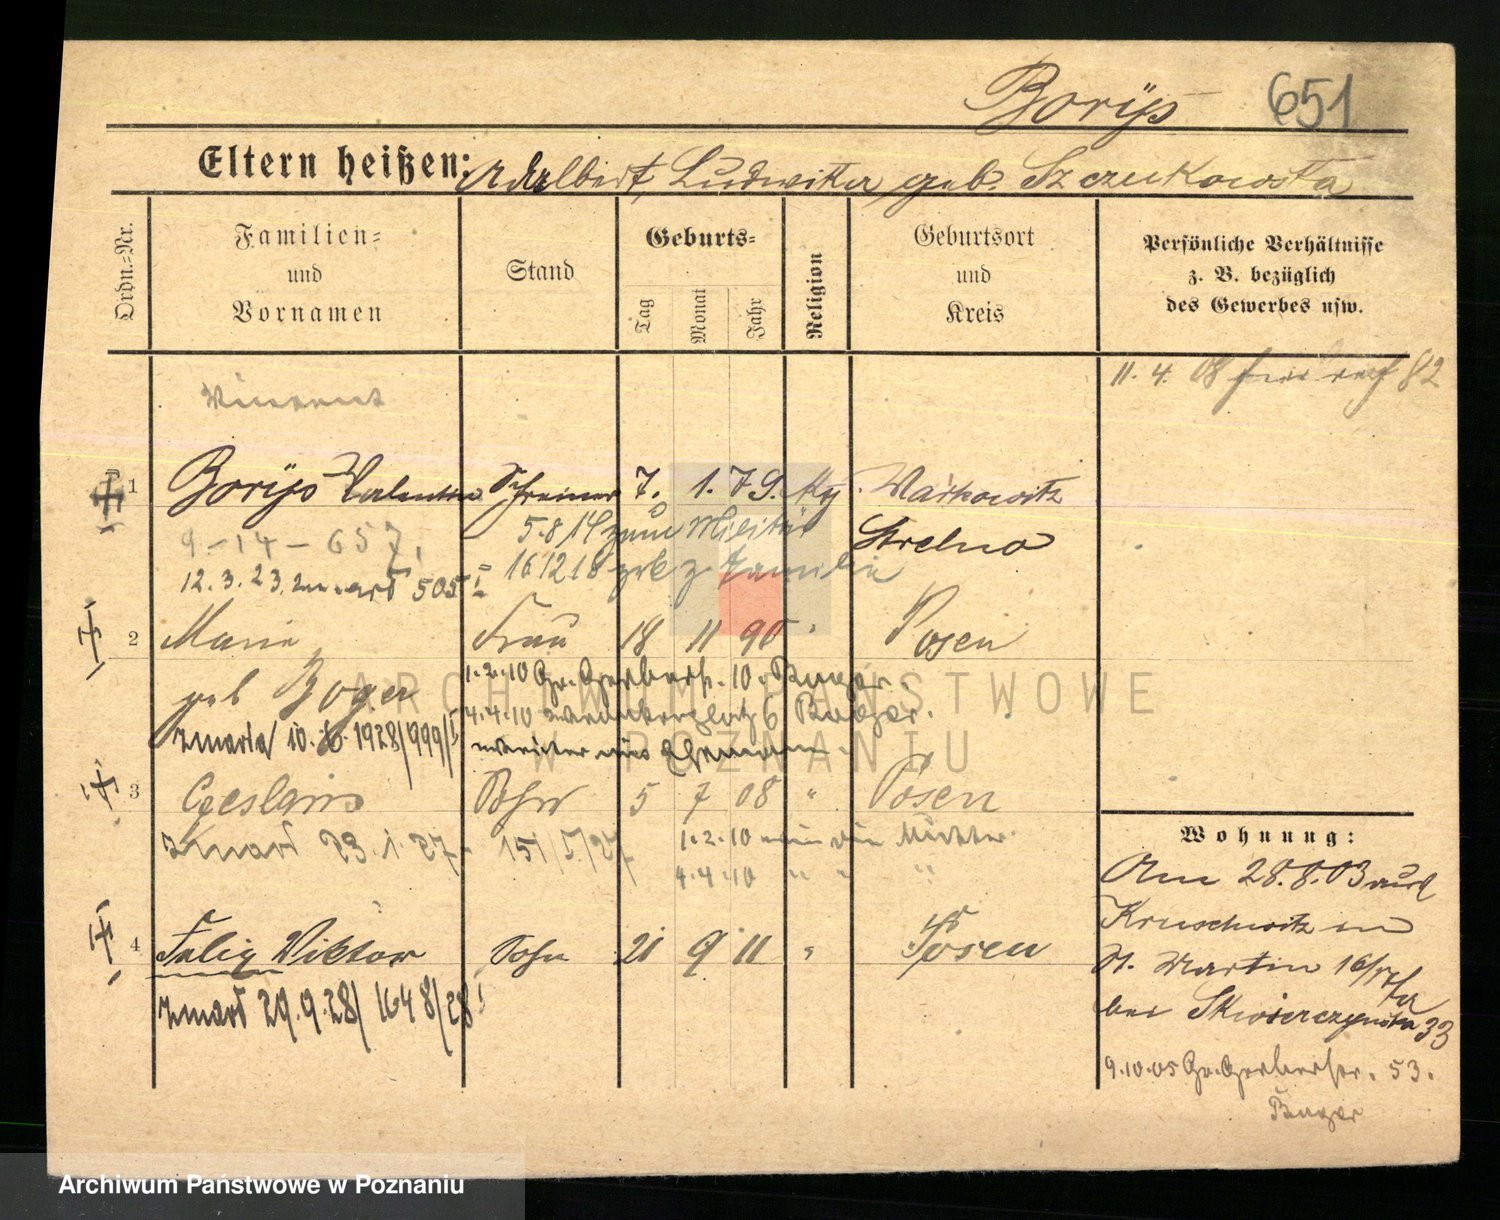 Borÿs 651
Eltern heißen: Adalbert, Ludwika geb. Szczukowska
Ordn.-Nr.
Familien-
und
Vornamen
Stand
Geburts-
Tag
Monat
Jahr
Religion
Geburtsort
und
Kreis
Persönliche Verhältnisse
z. B. bezüglich
des Gewerbes usw.
11. 4. 08 82
Vincent
1 Borÿs Valentin Schreiner 7. 1. 79. Markowitz
5.8.14 zum Militär Strelno
9 - 14 - 657.
12. 3. 23. 505 I
16 12 18 z. Familie
2 Marie Frau 18 11 90 " Posen
geb Boger
1.2.10 Gr. Gerberstr. 10.
4.4.10 6
zmarła 10. 1928/999/I
3 Czeslaus 5 7 08 " Posen
Zmarł 23.1.27 151/I/27
1.2.10 Mutter
4.4.10 " " "
4 Felix Viktor Sohn 21 9 11 " Posen
zmarł 29.9.28/ 1648/28 I
Wohnung:
Am 28.8.03 aus
Kruschwitz in
St. Martin 16/17
bei Skwierczynska 33
9.10.05 Gr. Gerberstr. 53.
ARCHIWUM PAŃSTWOWE
W POZNANIU
Archiwum Państwowe w Poznaniu